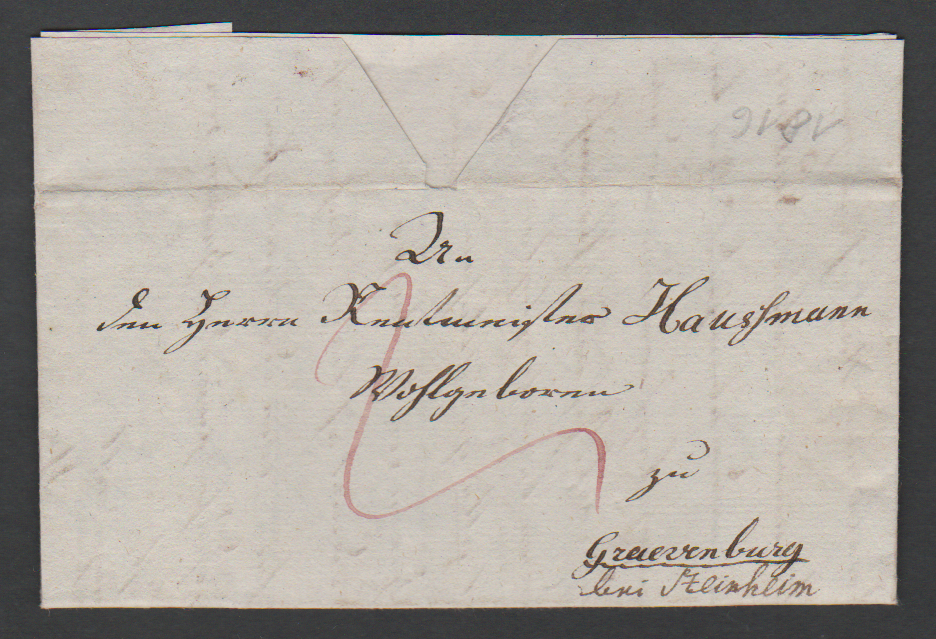 1816
An
den Herrn Rentmeister Haussmann
Wohlgeboren
zu
Graevenburg
bei Steinheim